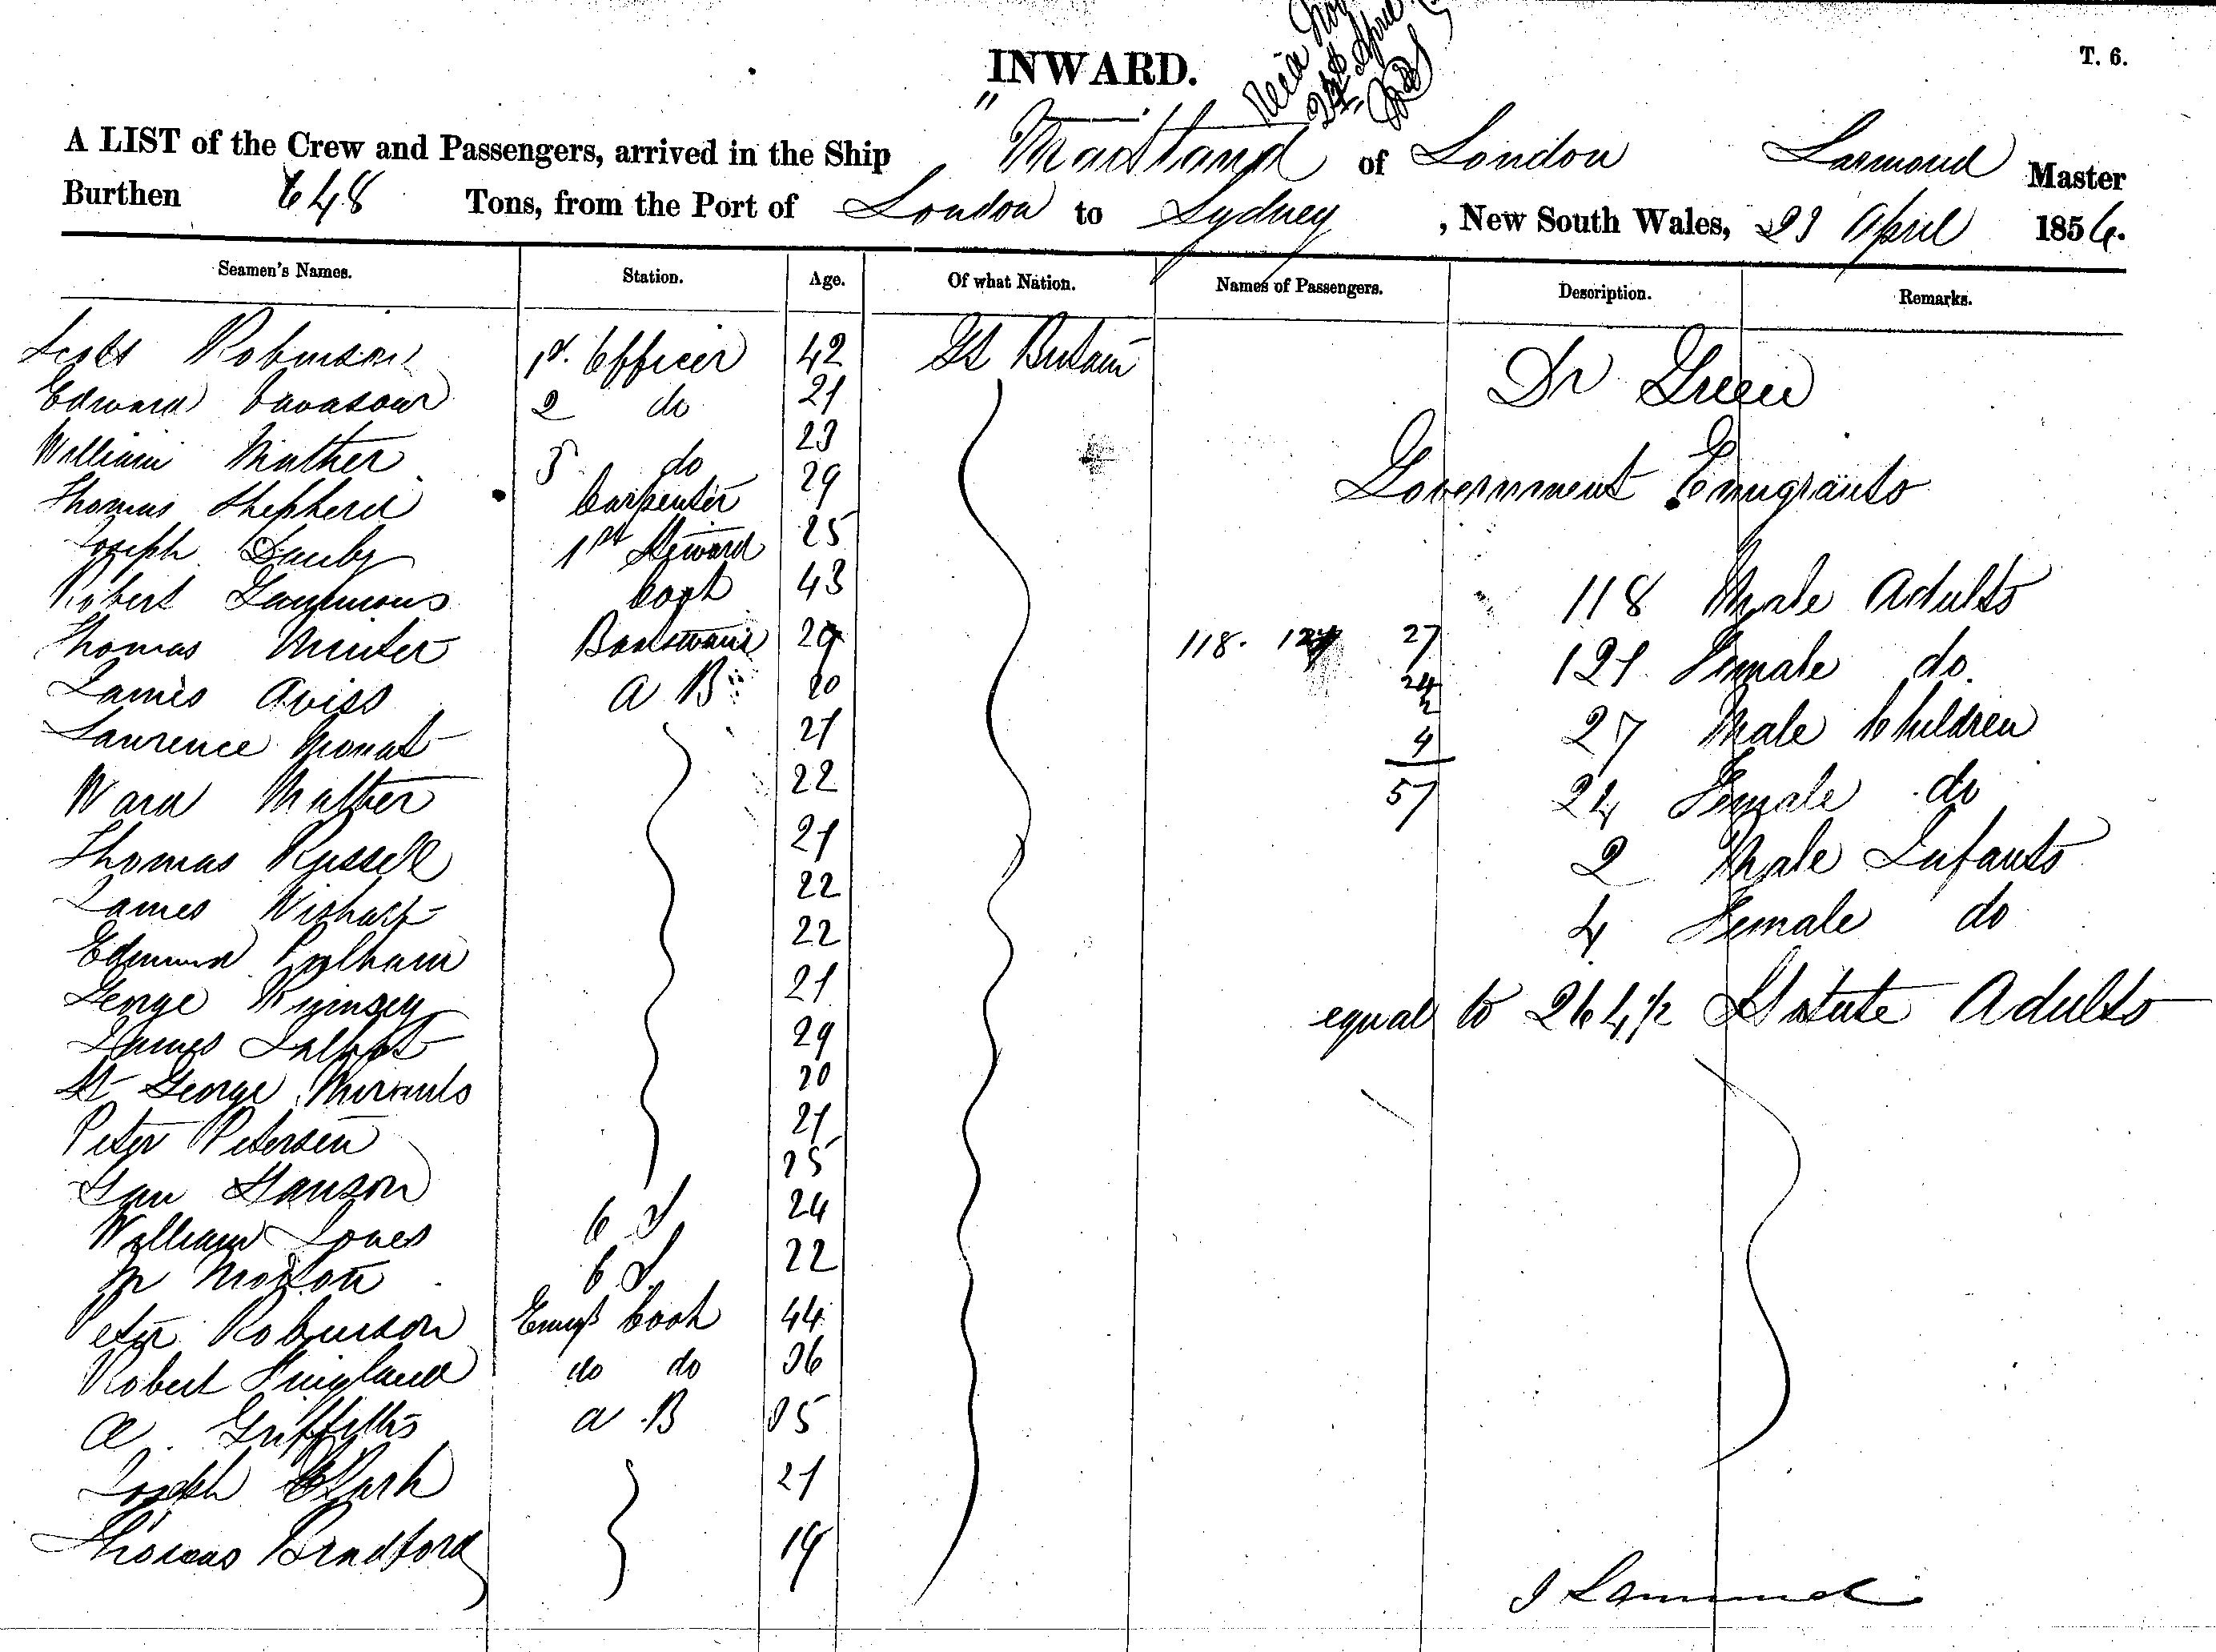 INWARD.
T. 6.
A LIST of the Crew and Passengers, arrived in the Ship "Maitland of London Larmond Master
Burthen 648 Tons, from the Port of London to Sydney, New South Wales, 23 April 1856.
Seamen's Names. Station. Age. Of what Nation. Names of Passengers. Description. Remarks.
Scott Robinson 1st. Officer 42 Gt Britain Dr Green
Edward Vavasour 2 do 21
William Mather 3 do 23
Thomas Shepherd Carpenter 29 Government Emigrants
Joseph 1st Steward 25
Robert Cook 43 118 Male Adults
Thomas Minter Boatswain 29 118. 121 27 121 Female do.
James Aviss A B 20 24
Laurence 21 2 27 Male Children
4
Ward Mather 22 57 24 Female do
Thomas Russell 21 2 Male Infants
James Wishart 22 4 Female do
Edmund Pulham 22
George Rumsey 21 equal to 264 1/2 Statute Adults
James Talbot 29
St George 20
Peter Petersen 21
Hanson 25
William Jones O S 24
Morton O S 22
Peter Robinson Emigt Cook 44
Robert do do 36
A. Griffiths A B 35
Joseph Clark 21
Thomas Bradford 19
J Larmond